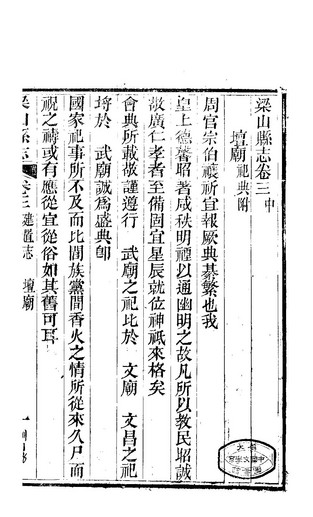 梁山縣志卷三中
壇廟祀典附
周官宗伯禳祈宣報厥典綦繁也我
皇上德馨昭著咸秩明禋以通幽明之故凡所以教民昭誠
敬廣仁孝者至備固宜星辰就位神祇來格矣
會典所載敬謹遵行 武廟之祀比於 文廟 文昌之祀
埒於 武廟誠爲盛典即
國家祀事所不及而比閭族黨間香火之情所從來久尸而
祝之禱或有應從宜從俗如其舊可耳
梁山縣志 卷三 建置志 壇廟 一